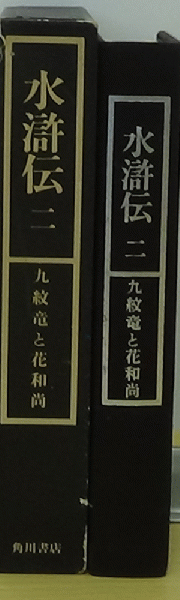 水滸伝 二
九紋竜と花和尚
角川書店
水滸伝 二
九紋竜と花和尚